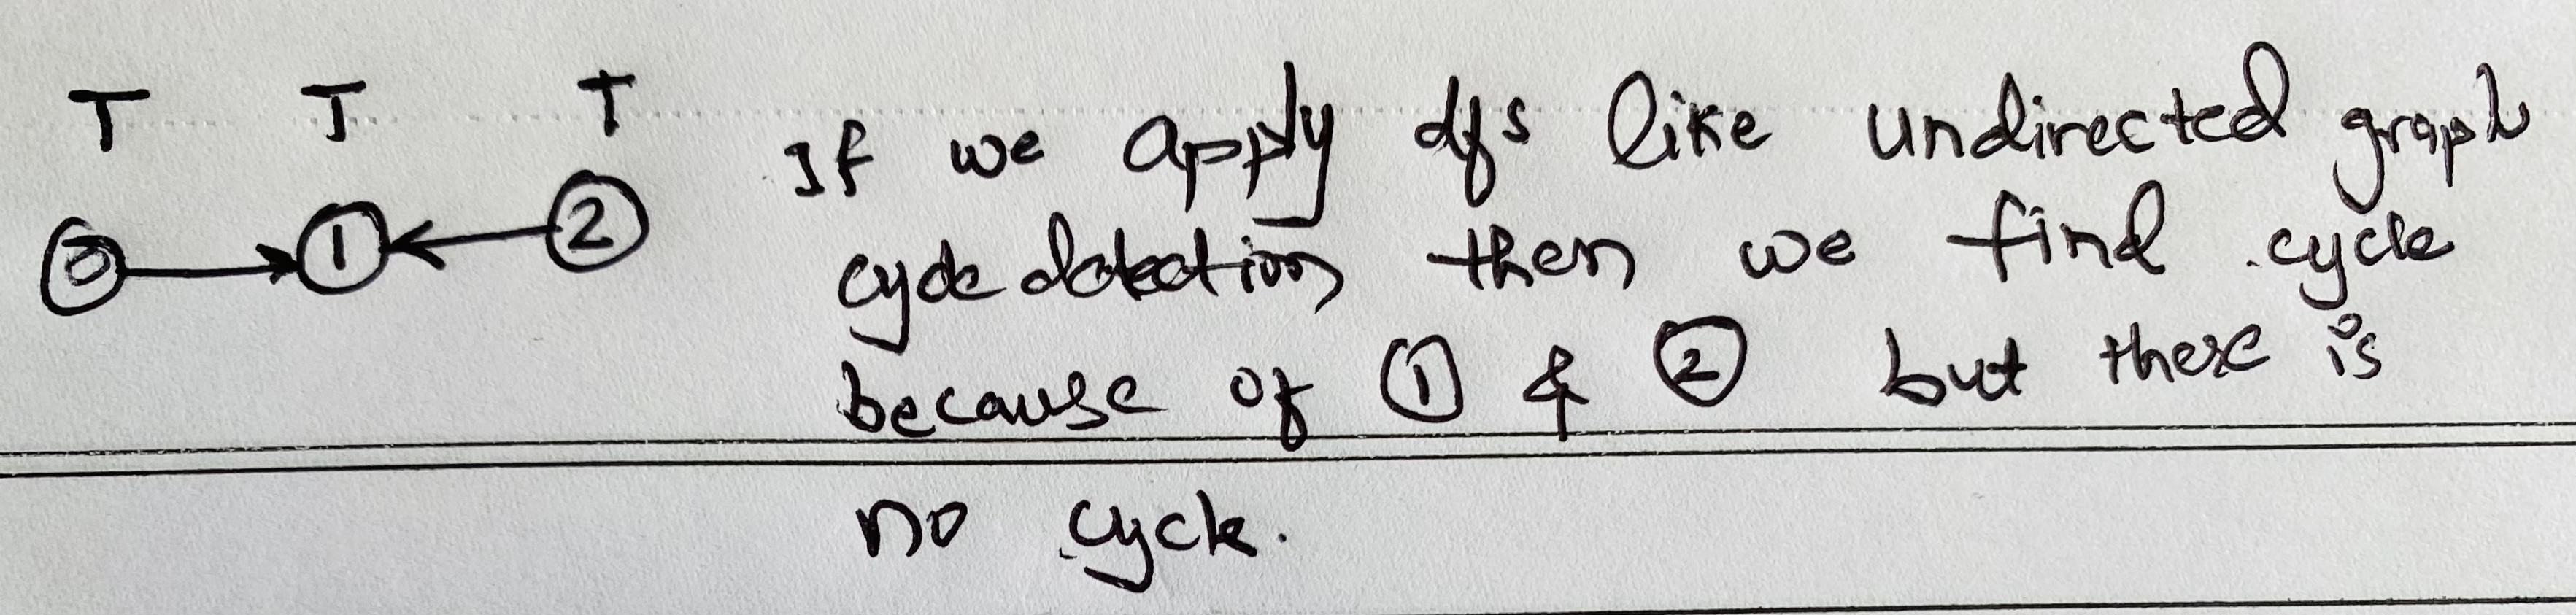 T T T
0 1 2
If we apply dfs like undirected graph
cycle detection then we find cycle
because of 1 & 2 but there is
no cycle.